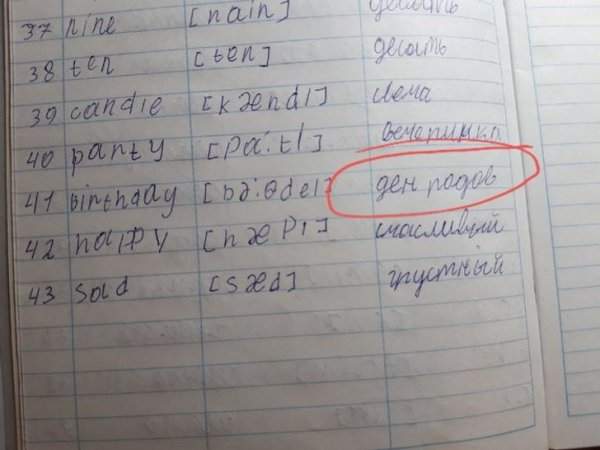 37 nine [nain] девать
38 ten [ten] десать
39 candle [kændl] свеча
40 party [pa:tI] вечеринка
41 Birthday [bə:θdeI] ден радов
42 happy [hæpI] счасливый
43 sad [sæd] грустный